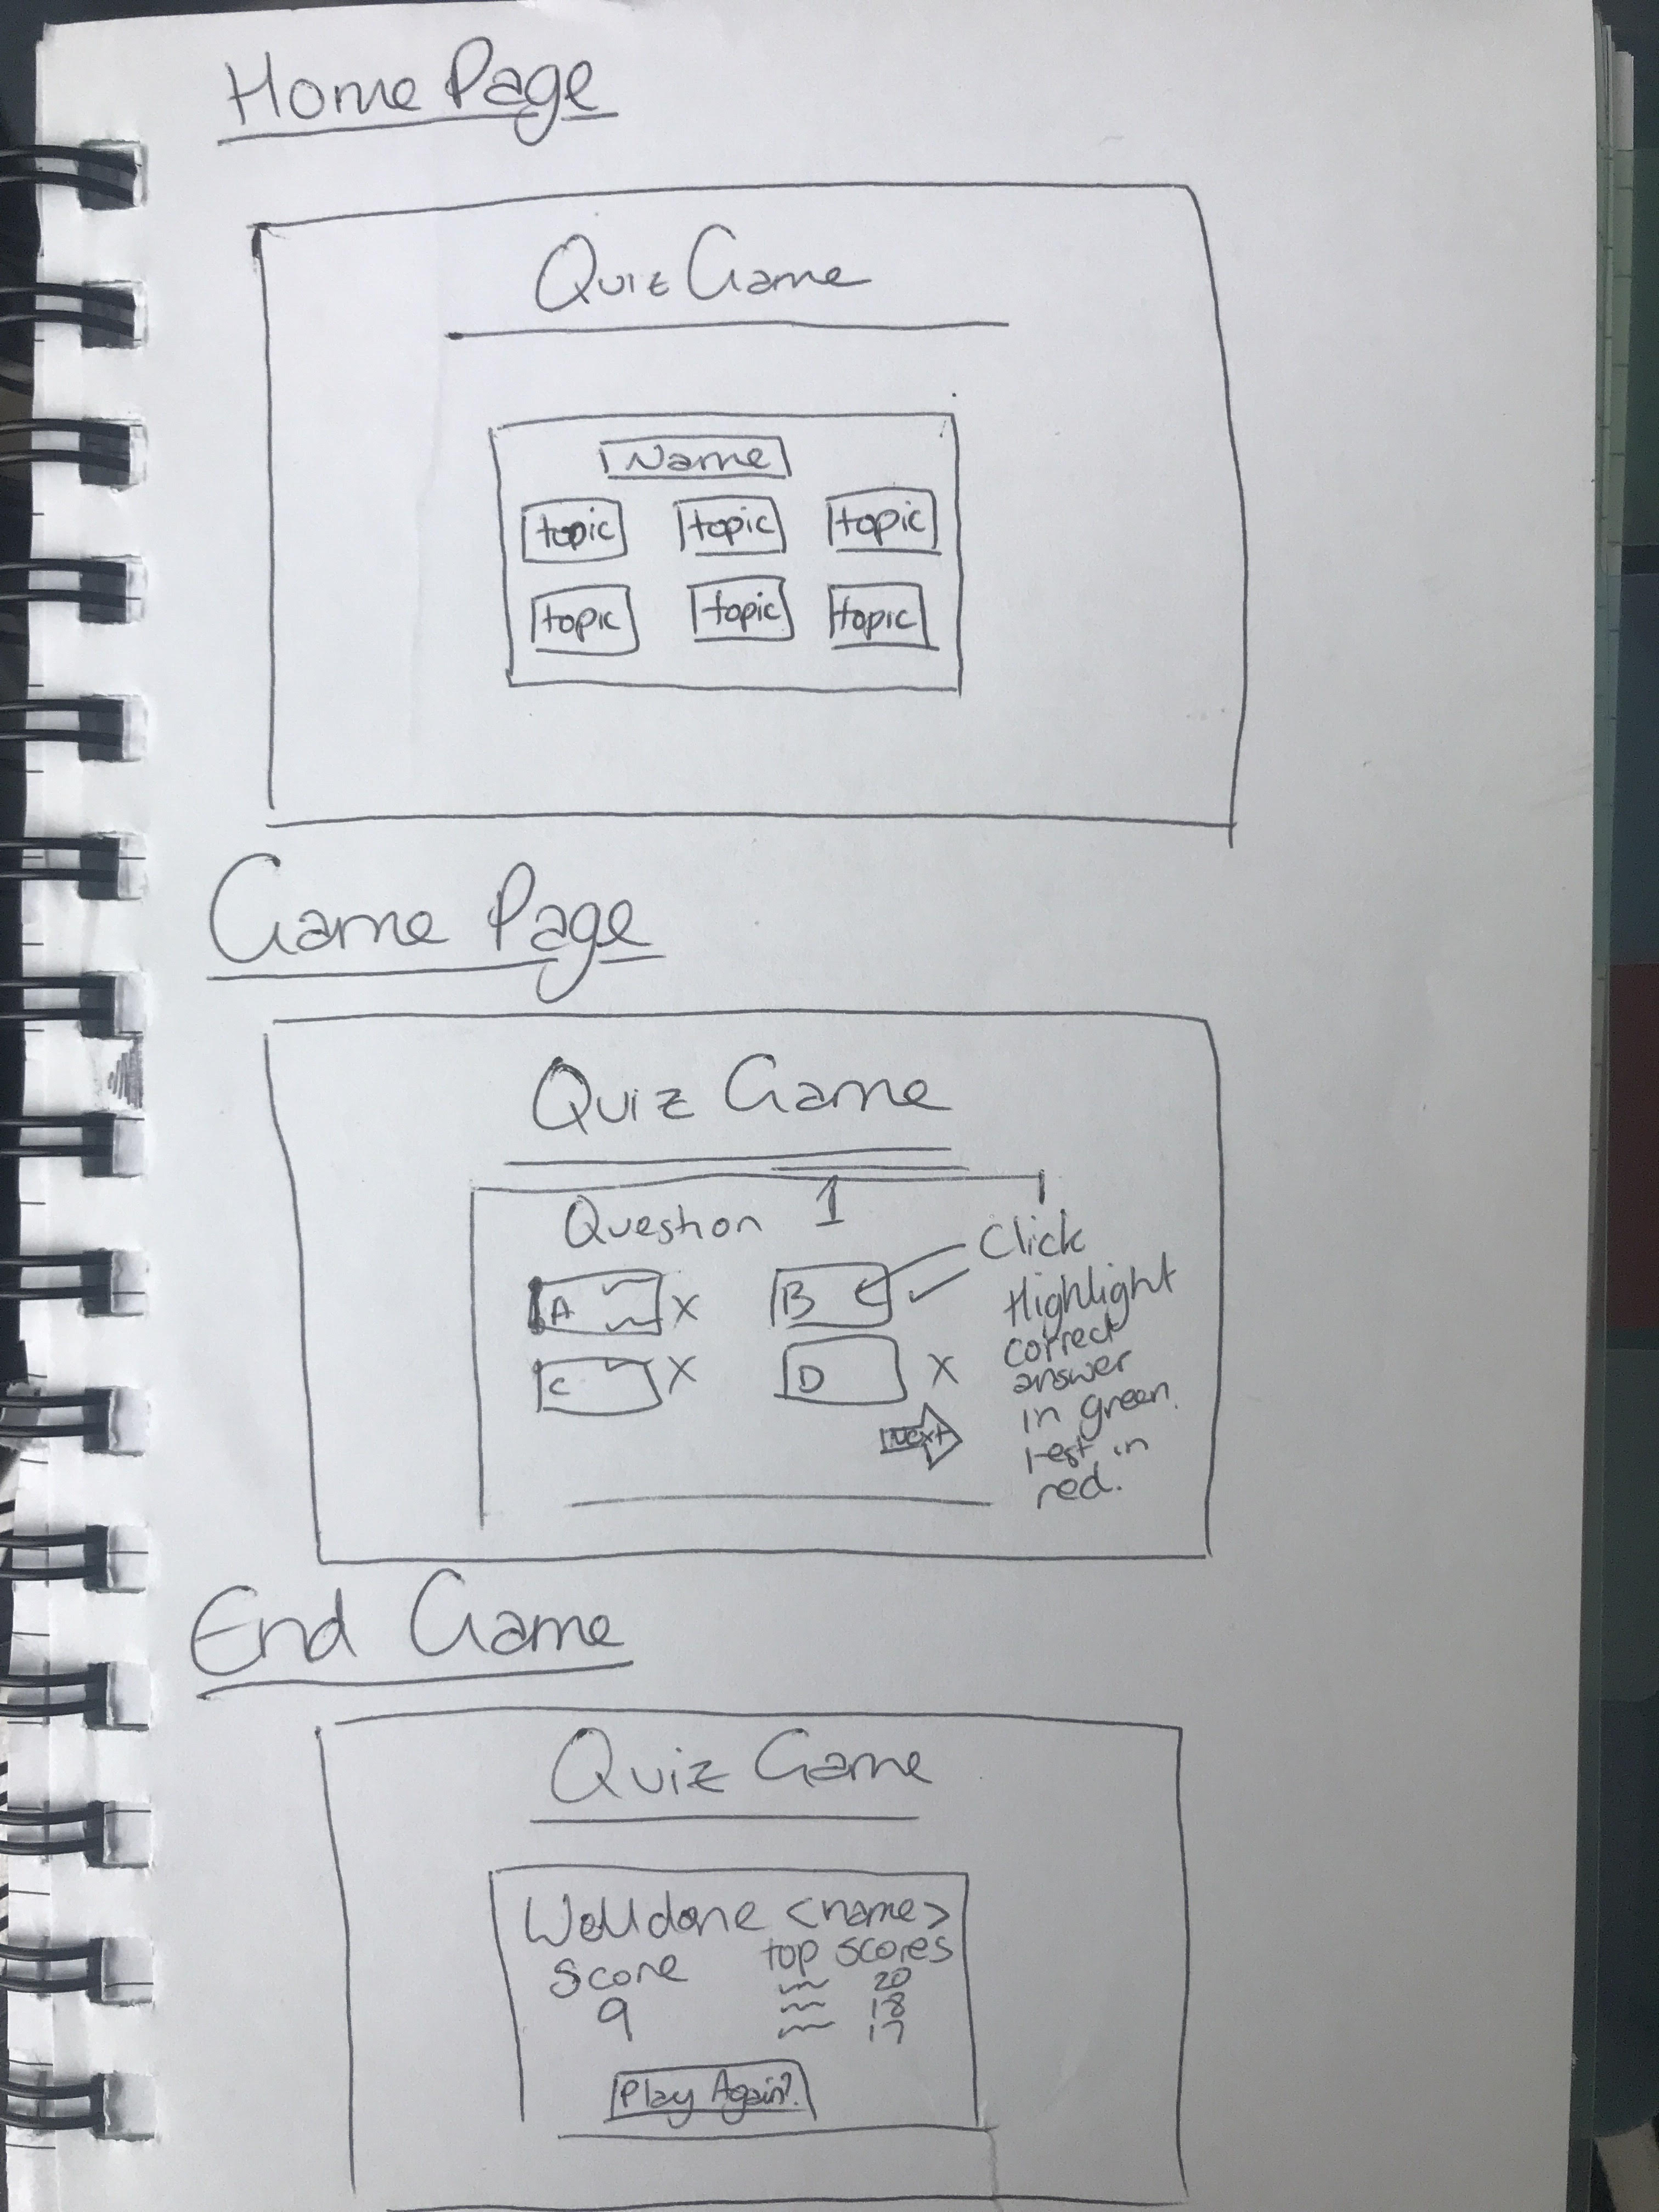 Home Page
Quiz Game
Name
topic topic topic
topic topic topic
Game Page
Quiz Game
Question 1
Click
A x B
Highlight
correct
C x D x
answer
in green.
Next
rest in
red.
End Game
Quiz Game
Welldone <name>
Score top scores
9 20
18
17
Play Again?